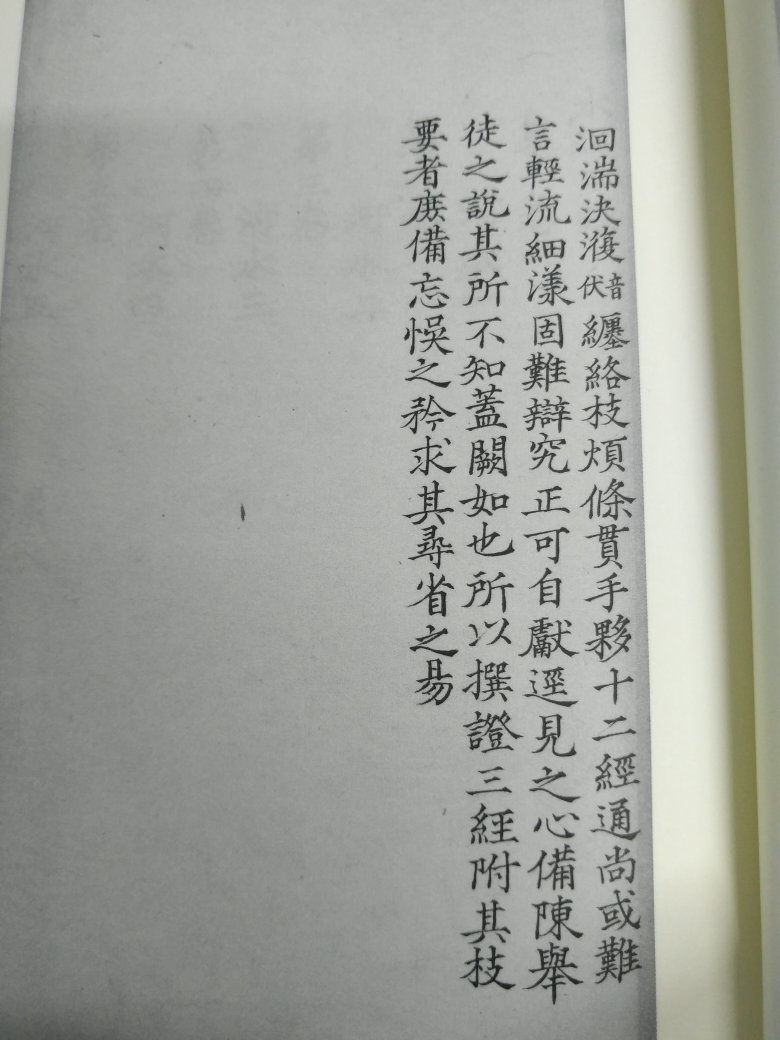 洄湍決澓音伏纏絡枝煩條貫手夥十二經通尚或難
言輕流細漾固難辯究正可自獻逕見之心備陳舉
徒之說其所不知蓋闕如也所以撰證三經附其枝
要者庶備忘悞之矜求其尋省之易